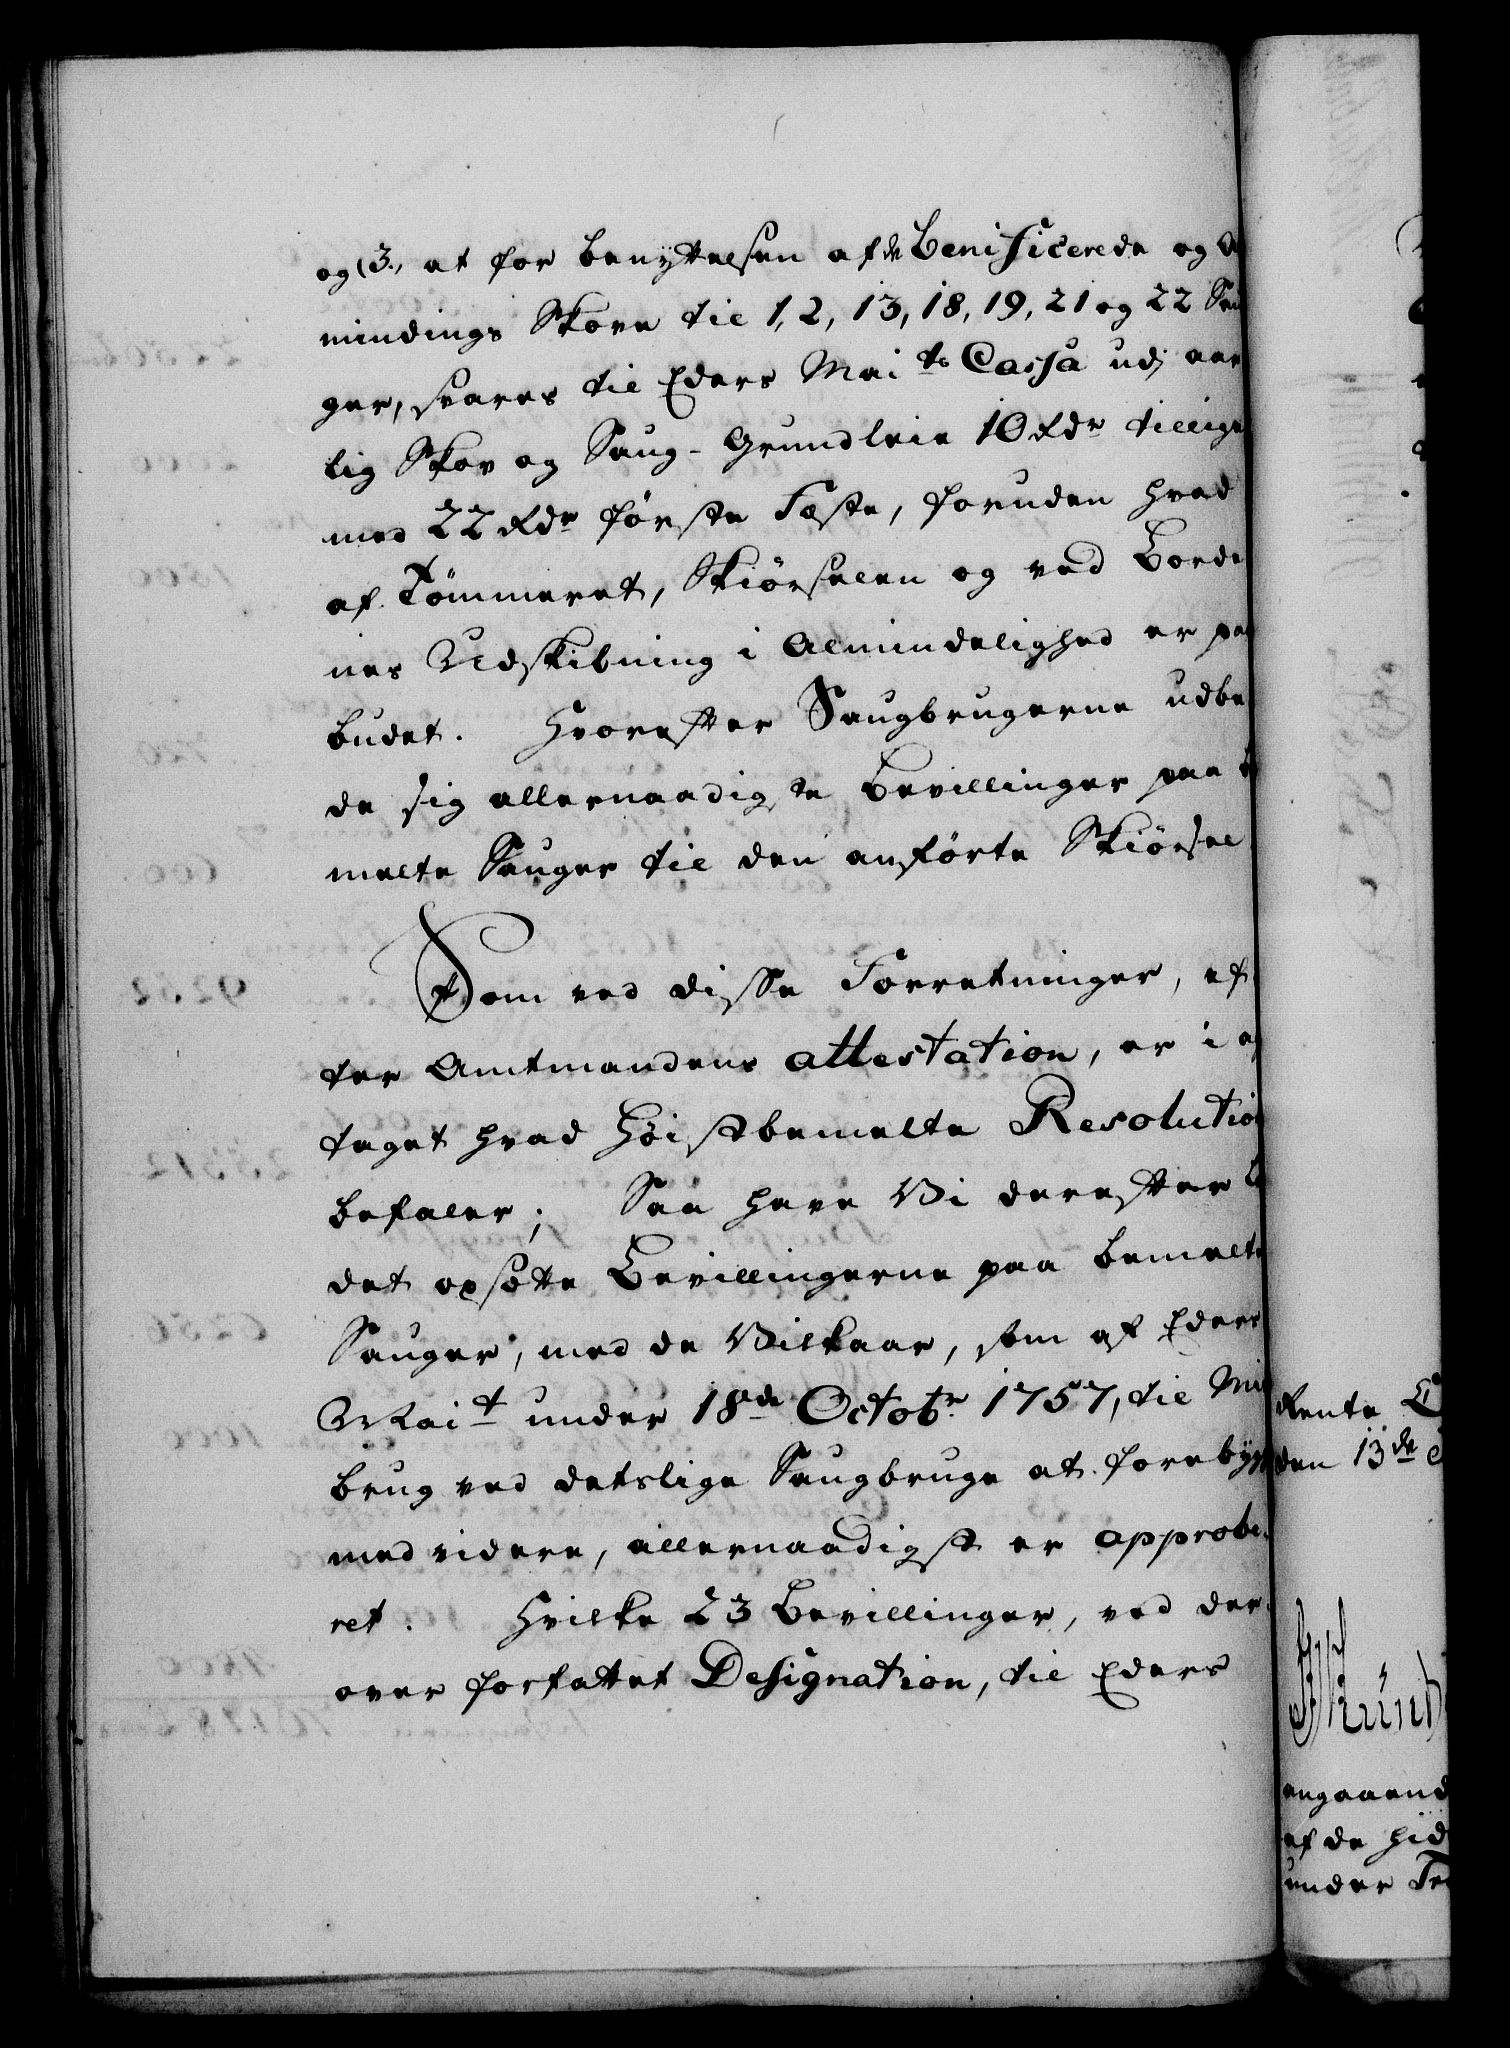 og (3., at for benÿttelsen af de Benificerede og
mindings Skove til 1, 2, 13, 18, 19, 21 og 22
ger, svares til Eders Maits Cassa udj aar
lig Skov og Saug-Grundleie 10 Rdr tillige
med 22 Rdr første Fæste, foruden hvad
af Tømmeret, Skiørselen og ved Borde
nes Udskibning i Almindelighed er paa
budet. Hvorefter Saugbrugerne udbe
de sig allernaadigste Bevillinger paa
melte Sauger til den anførte Skiørsel
Som ved disse Forretninger, ef
ter Amtmandens attestation, er i ag
taget hvad Høistbemelte Resolution
befaler; Saa have Vi derefter
det opsætte Bevillingerne paa bemelte
Sauger, med de Vilkaar, som af Eders
Mait under 18de Octobr 1757, til Mis
brug ved detslige Saugbruge at forebÿg
med videre, allernaadigst er approbe-
ret. Hvilke 23 Bevillinger, ved der-
over forfattet Designation, til Eders
Rente
den 13de
angaaend
af de hid
under